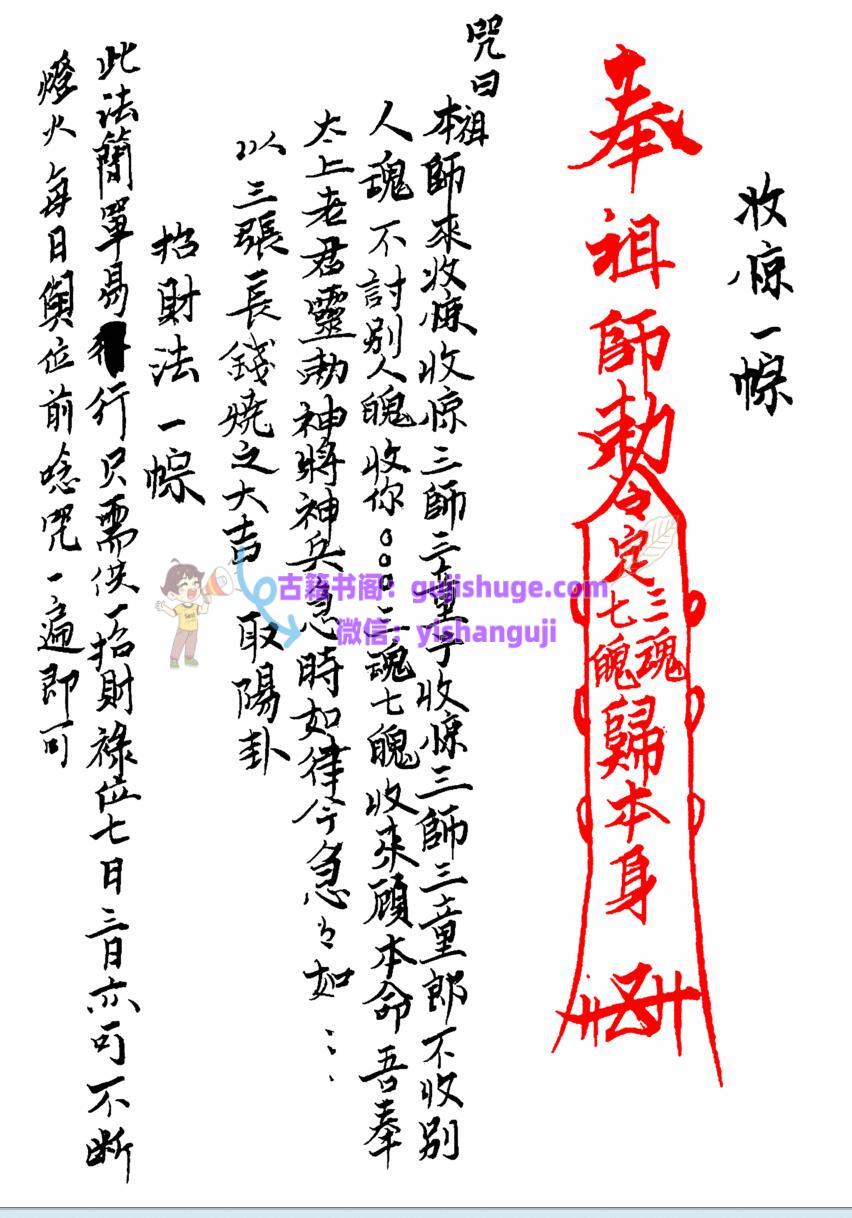 收惊一幖
奉祖師勅令定三魂七魄歸本身
咒曰
祖本師來收惊收惊三師三童子收惊三師三童郎不收别
人魂不討别人魄收你○○○三魂七魄收來顧本命吾奉
太上老君靈勅神將神兵急時如律令急々如⋮⋮
以三張長錢燒之大吉 取陽卦
招財法一幖
此法簡單易行只需供一招財祿位七日三日亦可不断
燈火每日與位前唸咒一遍即可
古籍书阁：gujishuge.com
微信：yishanguji